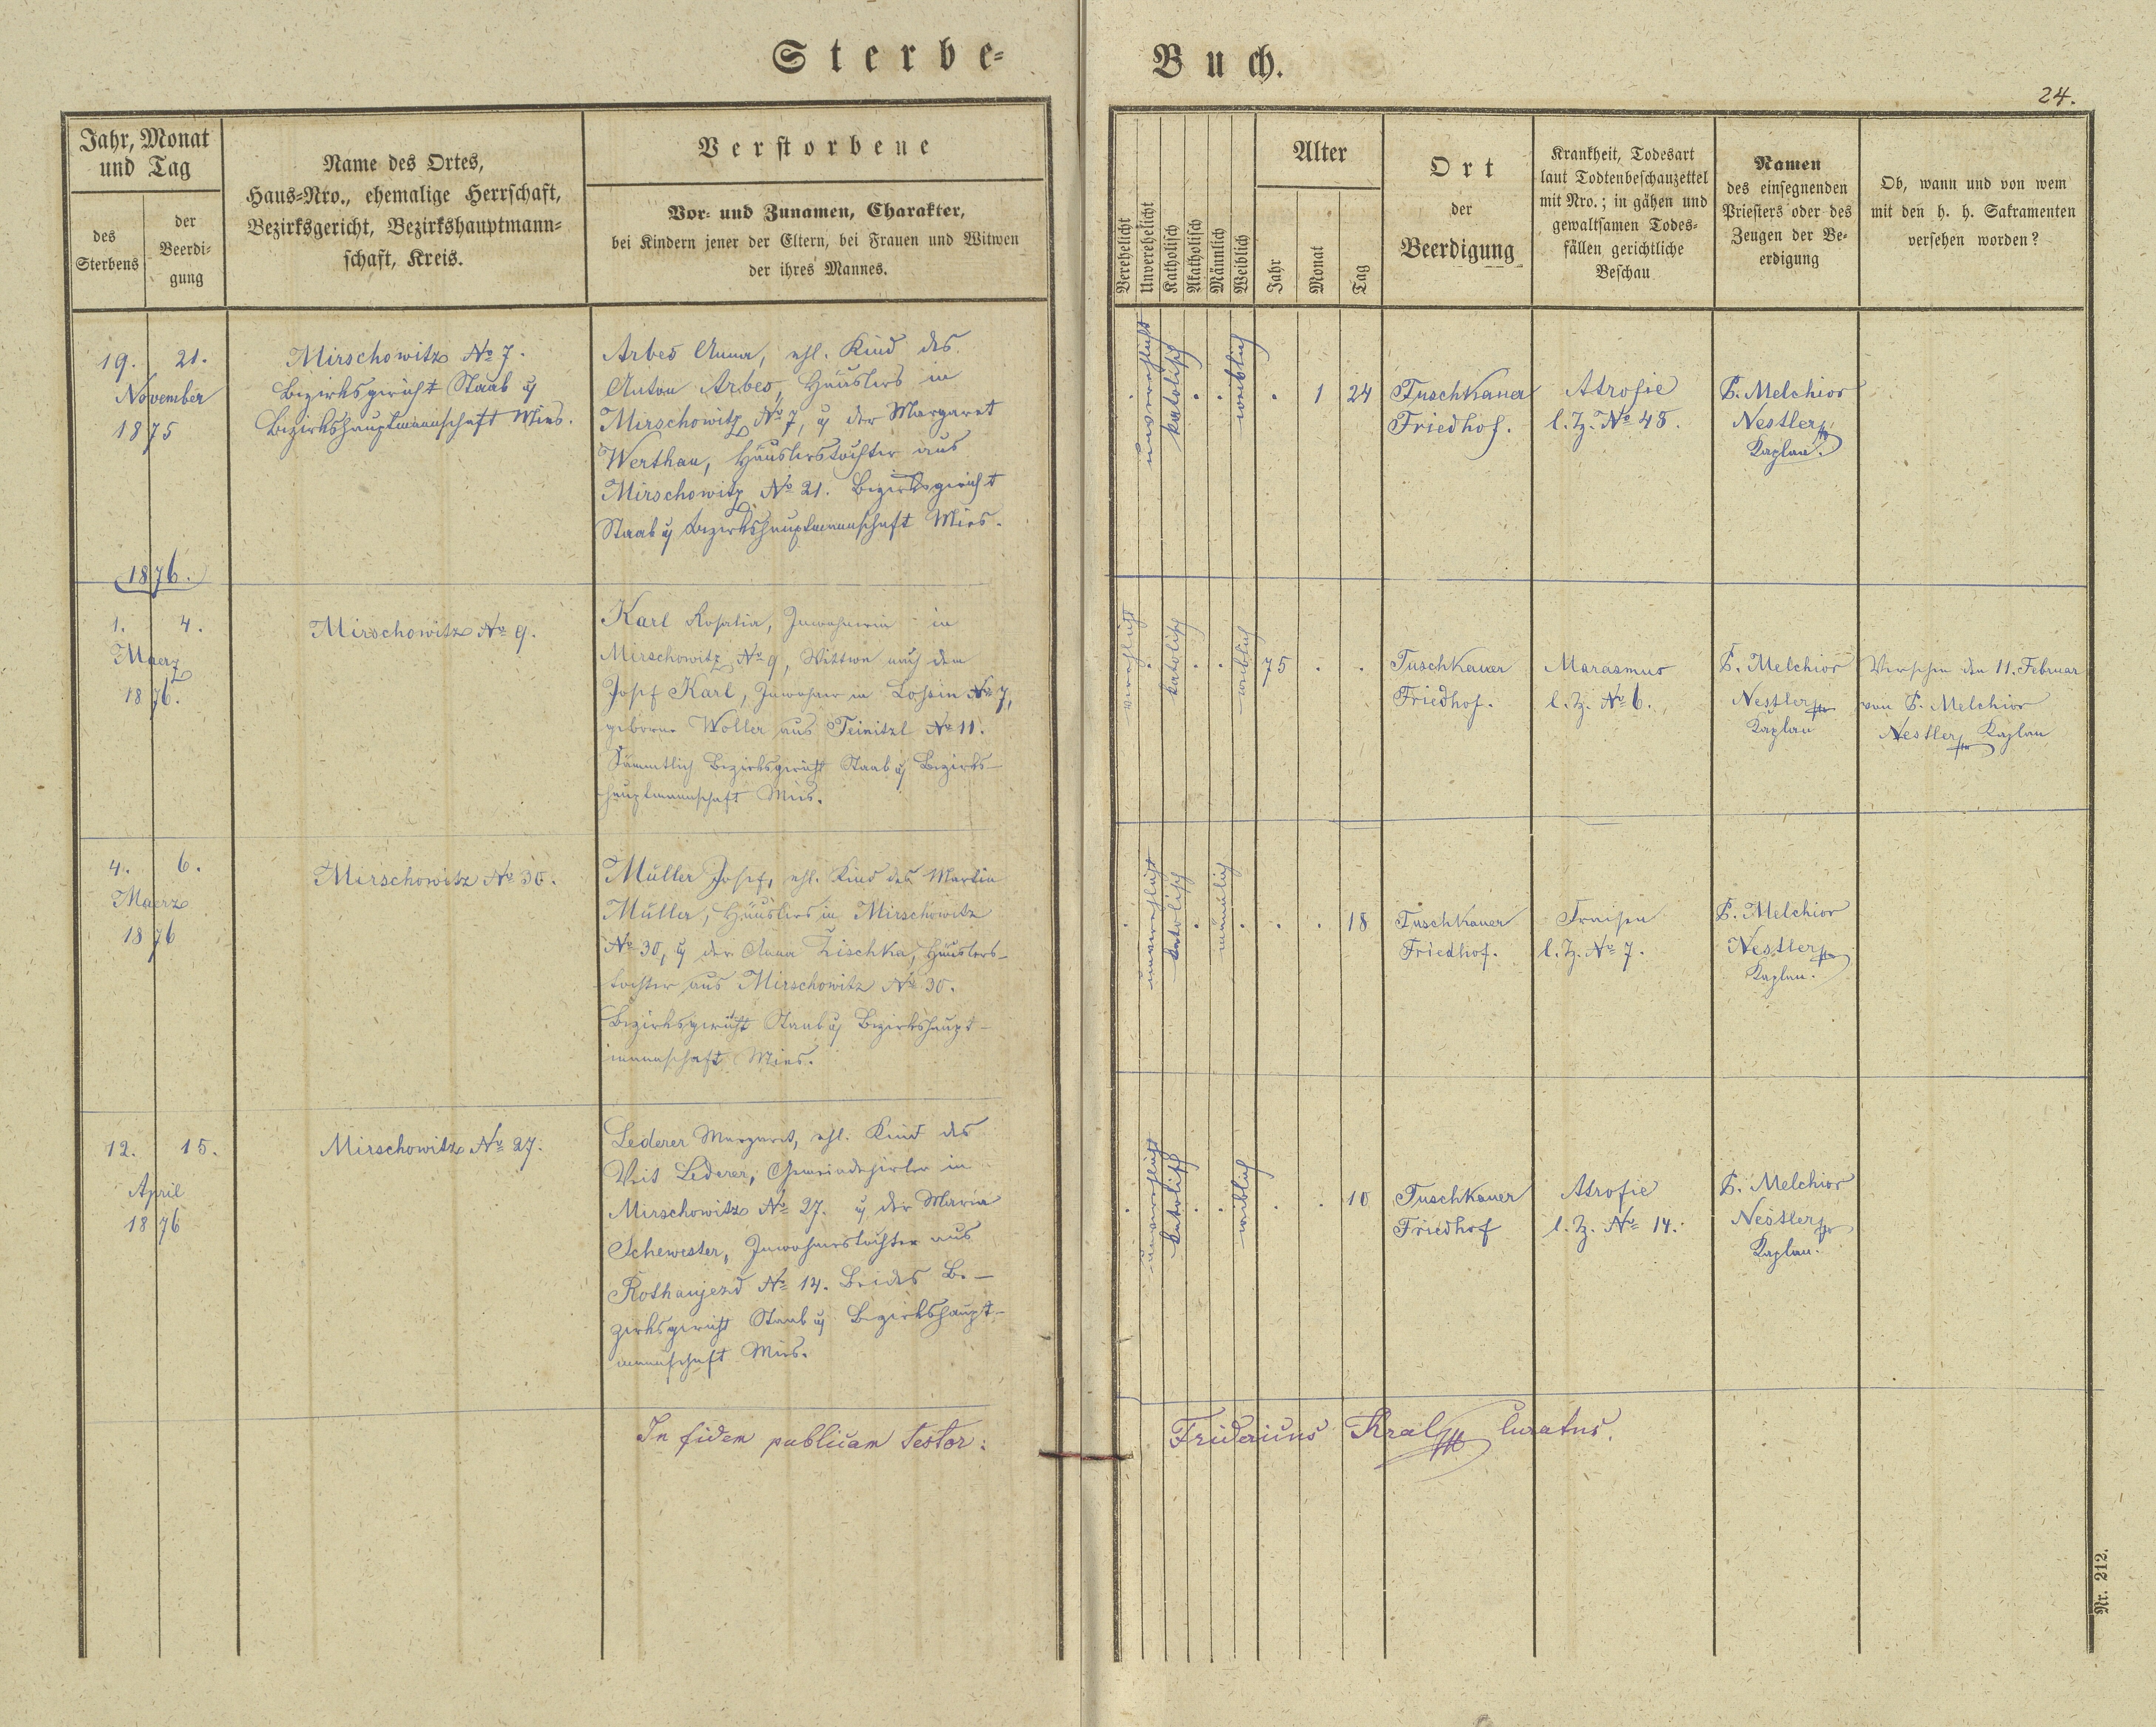 Sterbe-
Buch.
24.
Jahr, Monat
und Tag
des
Sterbens
der
Beerdi-
gung
Name des Ortes,
Haus-Nro., ehemalige Herrschaft,
Bezirksgericht, Bezirkshauptmann-
schaft, Kreis.
Verstorbene
Vor- und Zunamen, Charakter,
bei Kindern jener der Eltern, bei Frauen und Witwen
der ihres Mannes.
Verehelicht
Unverehelicht
Katholisch
Akatholisch
Männlich
Weiblich
Alter
Jahr
Monat
Tag
Ort
der
Beerdigung
Krankheit, Todesart
laut Todtenbeschauzettel
mit Nro.; in gähen und
gewaltsamen Todes-
fällen gerichtliche
Beschau
Namen
des einsegnenden
Priesters oder des
Zeugen der Be-
erdigung
Ob, wann und von wem
mit den h. h. Sakramenten
versehen worden?
19. 21.
November
1875
Mirschowitz No 7.
Bezirksgericht Staab u
Bezirkshauptmannschaft Mies.
Arbes Anna, ehl. Kind des
Anton Arbes, Häuslers in
Mirschowitz No 7, u der Margaret
Werthan, Häuslerstochter aus
Mirschowitz No 21. Bezirksgericht
Staab u Bezirkshauptmannschaft Mies.
unverehlicht
katolisch
weiblich
1 24
Tuschkauer
Friedhof.
Atrofie
l. Z. No 48.
P. Melchior
Nestler
Kaplan.
1876.
1. 4.
Maerz
1876.
Mirschowitz No 9.
Karl Rosalia, Inwohnerin in
Mirschowitz No 9, Wittwe nach dem
Josef Karl, Inwohner in Lossin No 7,
geborne Woller aus Teinitzl No 11.
Sämmtlich Bezirksgericht Staab u Bezirks-
hauptmannschaft Mies.
verehlicht
katolisch
weiblich
75
Tuschkauer
Friedhof.
Marasmus
l. Z. No 6.
P. Melchior
Nestler
Kaplan
Versehen den 11. Februar
von P. Melchior
Nestler Kaplan
4. 6.
Maerz
1876
Mirschowitz No 30.
Müller Josef, ehl. Kind des Martin
Müller, Häuslers in Mirschowitz
No 30, u der Anna Zischka, Häuslers-
tochter aus Mirschowitz No 30.
Bezirksgericht Staab u Bezirkshaupt-
mannschaft Mies.
unverehlicht
katolisch
männlich
18
Tuschkauer
Friedhof.
Fraisen
l. Z. No 7.
P. Melchior
Nestler
Kaplan.
12. 15.
April
1876
Mirschowitz No 27.
Lederer Margaret, ehl. Kind des
Veit Lederer, Gemeindehirten in
Mirschowitz No 27. u der Maria
Schewester, Inwohnerstochter aus
Rothaujezd No 14. Beides Be-
zirksgericht Staab u Bezirkshaupt-
mannschaft Mies.
unverehlicht
katolisch
weiblich
10
Tuschkauer
Friedhof
Atrofie
l. Z. No 14.
P. Melchior
Nestler
Kaplan.
In fidem publicam testor:
Fridericus Kral Curatus.
Nr. 212.